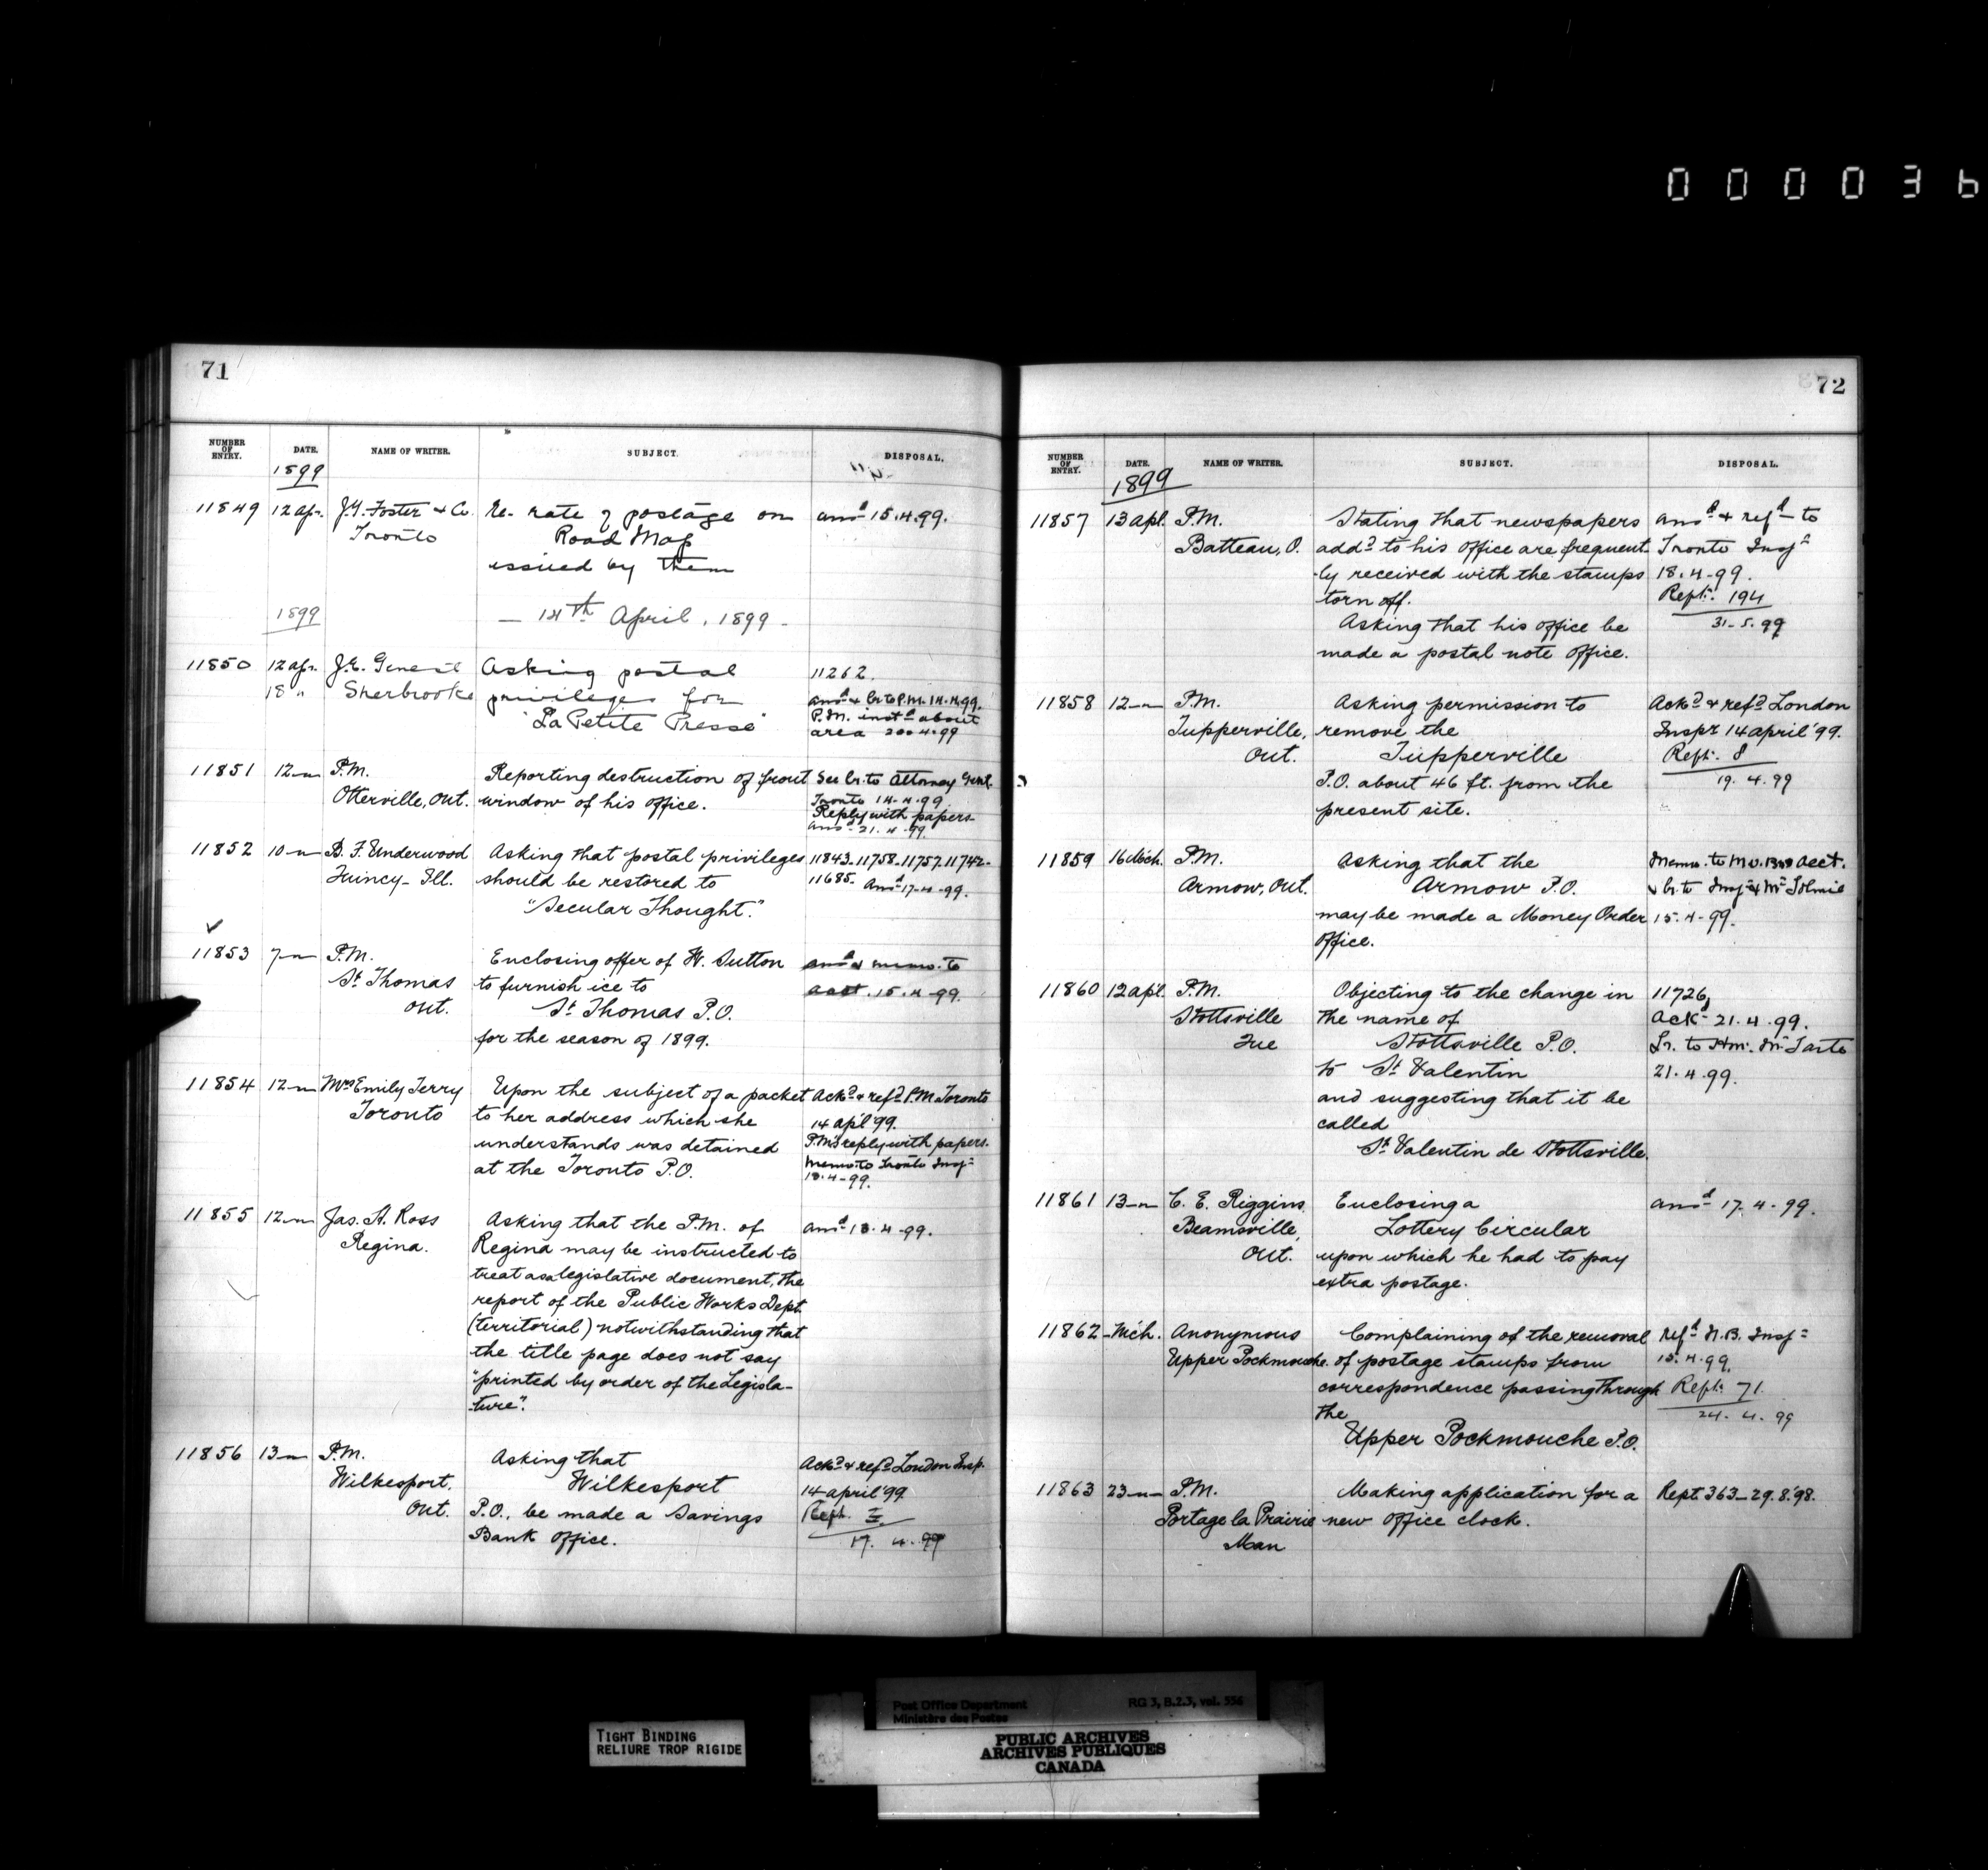 000036
71
NUMBER OF ENTRY. DATE. NAME OF WRITER. SUBJECT. DISPOSAL.
1899
11849 12 apr. J.G. Foster & Co. Re- rate of postage on ansd 15.4.99.
Toronto Road Map
issued by them
1899 — 14th April, 1899 -
11850 12 apr. J.E. Genest Asking postal 11262.
18 " Sherbrooke privileges for ansd & lr to P.M. 14.4.99.
"La Petite Presse" P.M. instd about
area 20.4.99
11851 12 — P.M. Reporting destruction of front See lr. to Attorney Genl.
Otterville, Ont. window of his office. Toronto 14-4-99
Reply with papers
ansd 21.4.99.
11852 10 — B. F. Underwood Asking that postal privileges 11843-11758-11757-11742-
Quincy- Ill. should be restored to 11685. Ansd 17-4-99.
"Secular Thought."
11853 7 — P.M. Enclosing offer of W. Sutton ansd & memo. to
St Thomas to furnish ice to acct. 15.4.99.
Ont. St Thomas P.O.
for the season of 1899.
11854 12 — Mrs Emily Terry Upon the subject of a packet Ackd & refd P.M. Toronto
Toronto to her address which she 14 apl '99.
understands was detained P.M's reply with papers.
at the Toronto P.O. Memo to Toronto Inspr
18.4-99.
11855 12 — Jas. A. Ross Asking that the P.M. of ansd 18.4.99.
Regina. Regina may be instructed to
treat as a legislative document, the
report of the Public Works Dept.
(territorial) notwithstanding that
the title page does not say
"printed by order of the Legisla-
ture".
11856 13 — P.M. Asking that Ackd & refd London Insp.
Wilkesport, Wilkesport 14 april '99
Ont. P.O., be made a Savings Rept.
Bank Office. 17. 4. 99
72
NUMBER OF ENTRY. DATE. NAME OF WRITER. SUBJECT. DISPOSAL.
1899
11857 13 apl. P.M. Stating that newspapers ansd & refd to
Batteau, O. addd to his office are frequent- Toronto Inspr
ly received with the stamps 18.4-99.
torn off. Rept. 194
Asking that his office be 31-5.99
made a postal note office.
11858 12 — P.M. Asking permission to Ackd & refd London
Tupperville, remove the Inspr 14 april '99.
Ont. Tupperville Rept. 8
P.O. about 46 ft. from the 19. 4. 99
present site.
11859 16 Mch. P.M. Asking that the Memo. to M.O. Br. acct.
Armow, Ont. Armow P.O. & lr. to Inspr & Mr Tolmie
may be made a Money Order 15.4-99.
office.
11860 12 apl. P.M. Objecting to the change in 11726,
Stottsville the name of Ackd 21.4.99.
Que Stottsville P.O. Lr. to Hon. Mr Tarte
to St Valentin 21.4.99.
and suggesting that it be
called
St Valentin de Stottsville.
11861 13 — C. E. Riggins Enclosing a ansd 17.4.99.
Beamsville, Lottery Circular
Ont. upon which he had to pay
extra postage.
11862 - Mch. Anonymous Complaining of the removal refd N.B. Inspr
Upper Pockmouche. of postage stamps from 15.4.99.
correspondence passing through Rept. 71.
the 24. 4. 99
Upper Pockmouche P.O.
11863 23 — P.M. Making application for a Rept. 363-29.8.'98.
Portage la Prairie new office clock.
Man
TIGHT BINDING
RELIURE TROP RIGIDE
Post Office Department RG 3, B.2.3, vol. 556
Ministère des Postes
PUBLIC ARCHIVES
ARCHIVES PUBLIQUES
CANADA